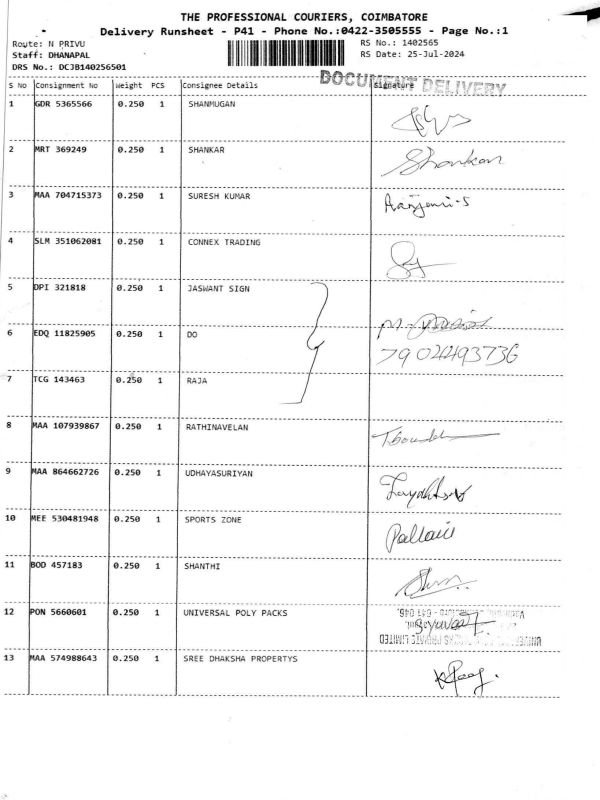 THE PROFESSIONAL COURIERS, COIMBATORE
Delivery Runsheet - P41 - Phone No.:0422-3505555 - Page No.:1
Route: N PRIVU
RS No.: 1402565
Staff: DHANAPAL
RS Date: 25-Jul-2024
DRS No.: DCJB140256501
DOCUMENT DELIVERY
S No Consignment No Weight PCS Consignee Details Signature
1 GDR 5365566 0.250 1 SHANMUGAN
2 MRT 369249 0.250 1 SHANKAR Shankar
3 MAA 704715373 0.250 1 SURESH KUMAR Ranjani-S
4 SLM 351062081 0.250 1 CONNEX TRADING
5 DPI 321818 0.250 1 JASWANT SIGN
6 EDQ 11825905 0.250 1 DO 7902449373G
7 TCG 143463 0.250 1 RAJA
8 MAA 107939867 0.250 1 RATHINAVELAN
9 MAA 864662726 0.250 1 UDHAYASURIYAN
10 MEE 530481948 0.250 1 SPORTS ZONE Pallavi
11 BOD 457183 0.250 1 SHANTHI
12 PON 5660601 0.250 1 UNIVERSAL POLY PACKS
13 MAA 574988643 0.250 1 SREE DHAKSHA PROPERTYS